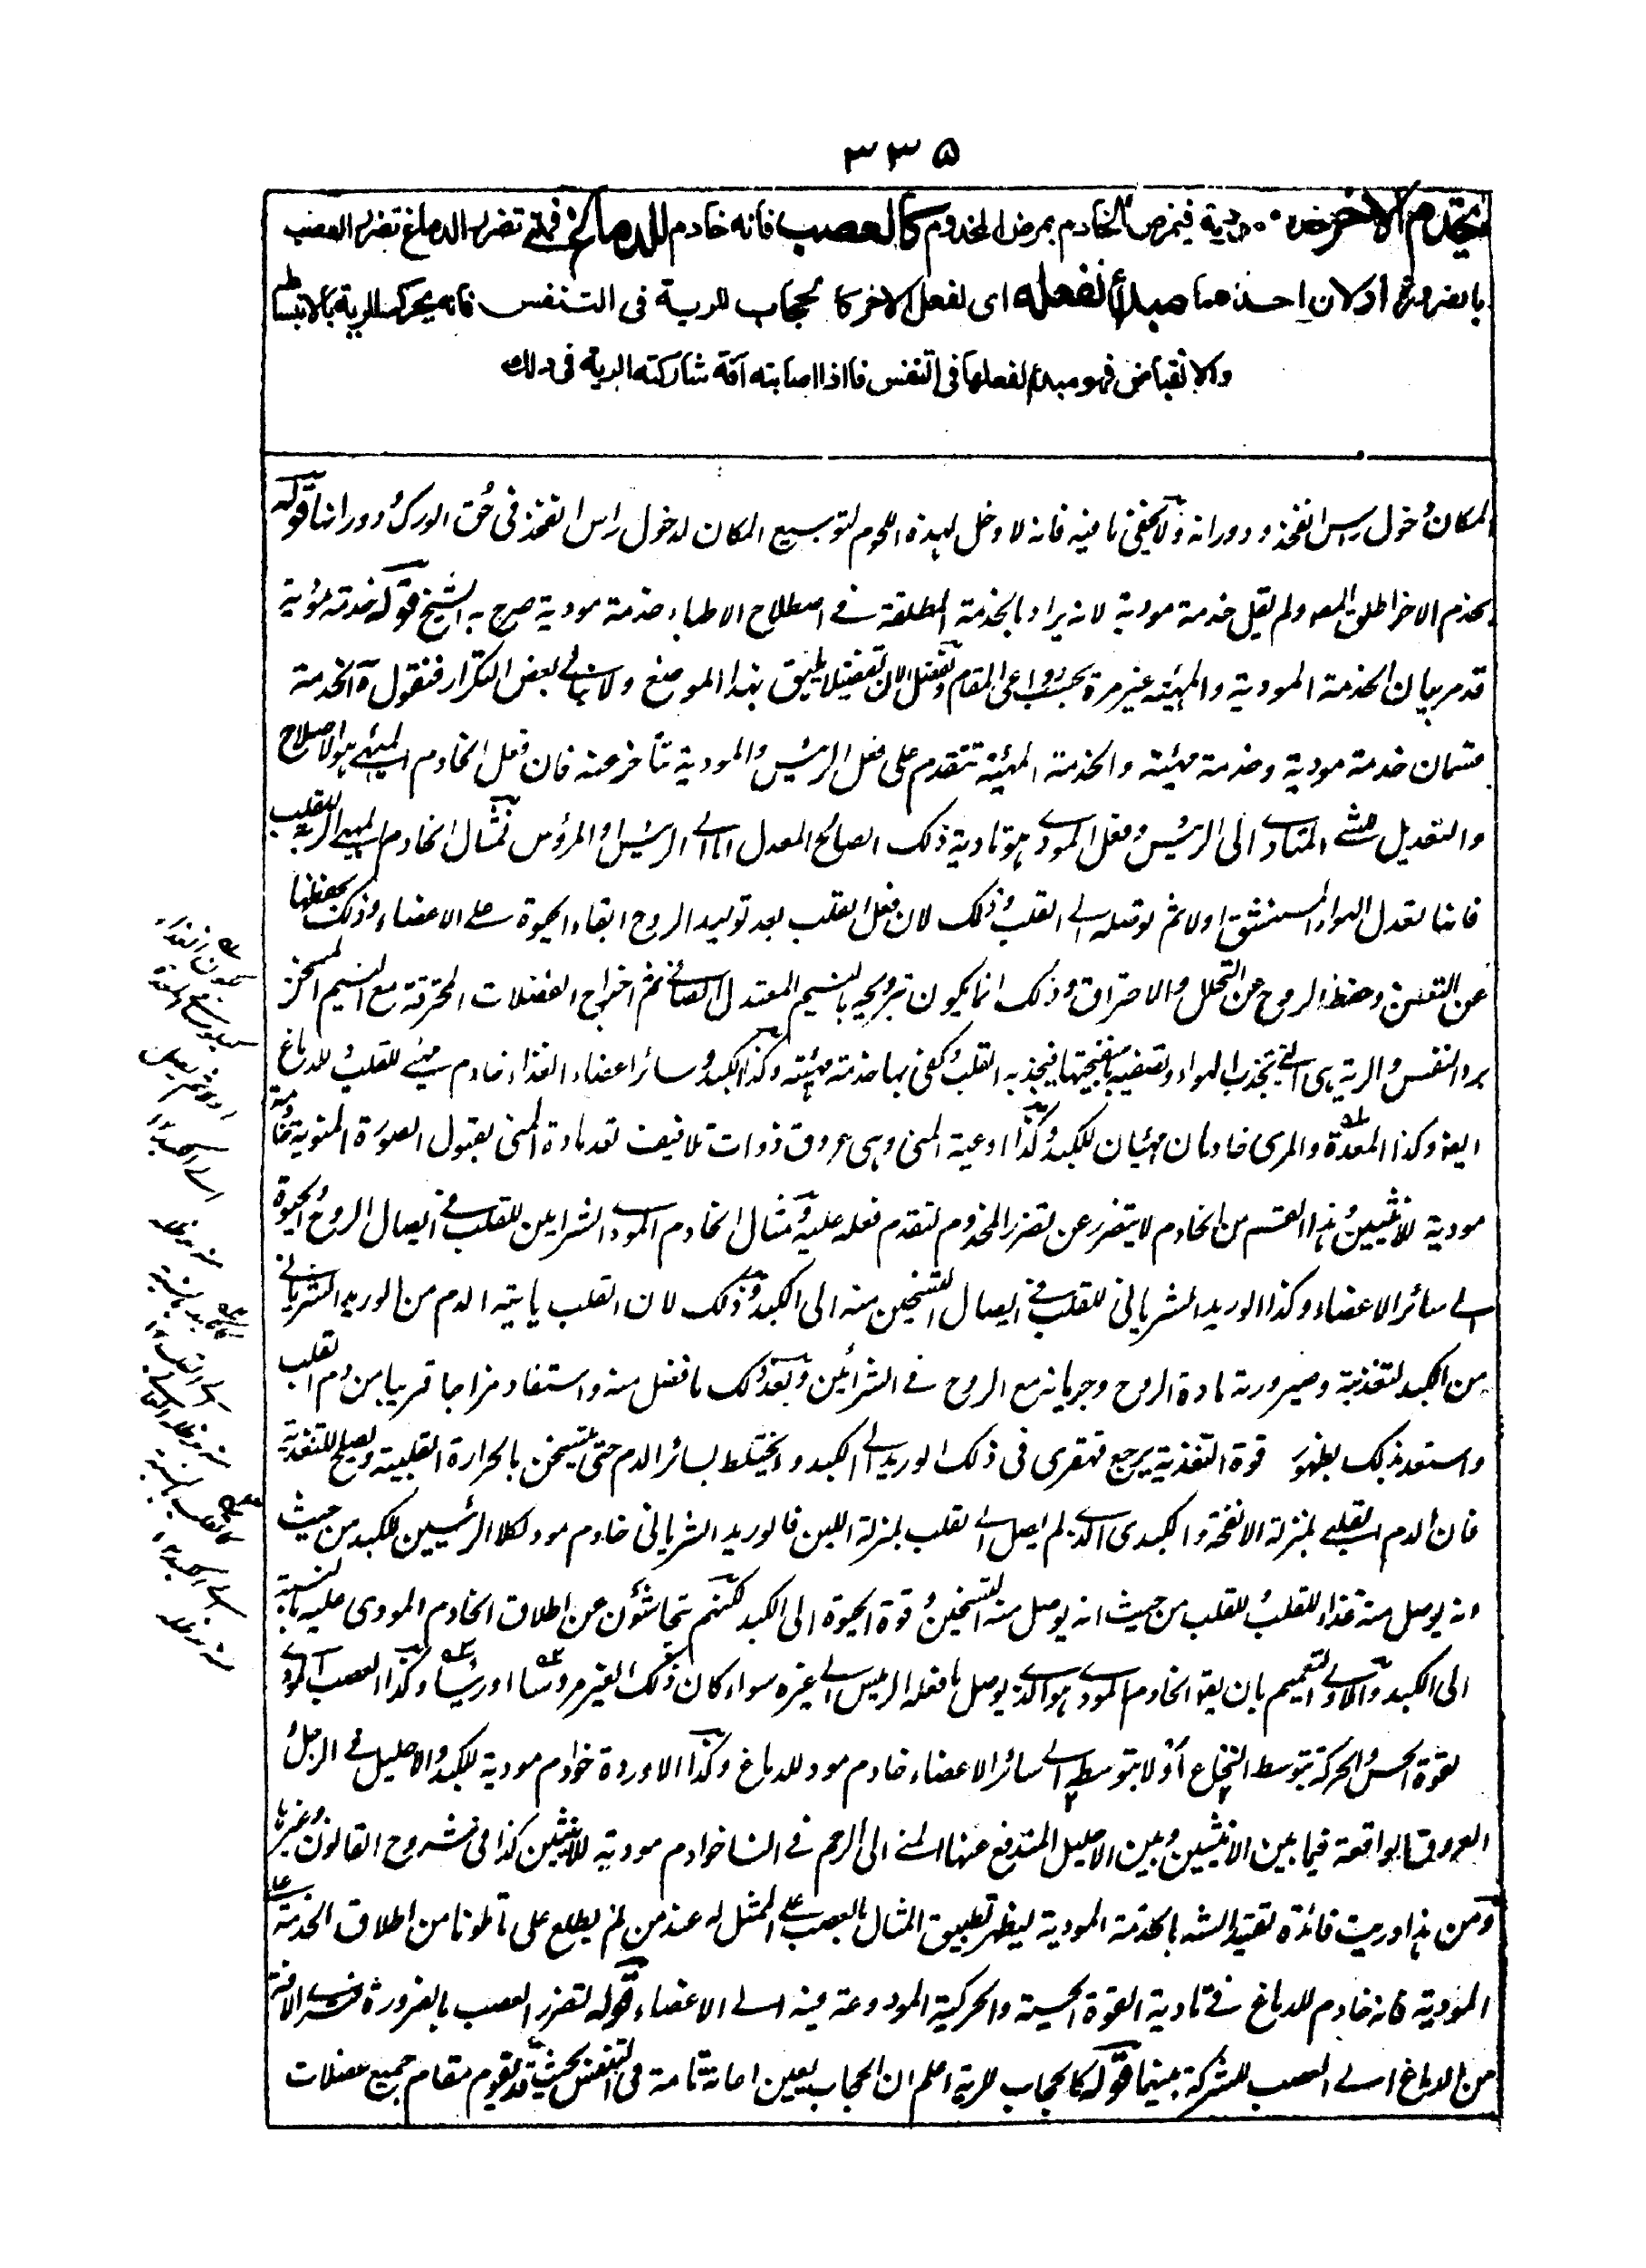 ۳۳۵
يخدم الاخر خدمة مودية فيمرض الخادم بمرض المخدوم كالعصب فانه خادم للدماغ فمتى تضرر الدماغ تضرر العصب
بالضرورة او لان احدهما مبدأ لفعله اى لفعل الاخر كالحجاب للرية فى التنفس فانه يحرك الرية بالانبساط
والانقباض فهو مبدء لفعلها فى التنفس فاذا اصابته آفة شاركته الرية فى ذلك
لمكان دخول راس الفخذ ودورانه ولا يخفى ما فيه فانه لا دخل لهذه اللحوم لتوسيع المكان لدخول راس الفخذ فى حُق الورك ودورانها قوله
يخدم الاخر اطلق المص ولم يقل خدمة مودية لانه يراد بالخدمة المطلقة فى اصطلاح الاطباء خدمة مودية صرح به الشيخ قوله خدمة مودية
قد مر بيان الخدمة المودية والمهيئة غير مرة بحسب دواعى المقام ونفصل الان تفصيلا يليق بهذا الموضع ولا نبالى بعض التكرار فنقول ان الخدمة
قسمان خدمة مودية وخدمة مهيئة والخدمة المهيئة تتقدم على فعل الرئيس والمودية تتأخر عنه فان فعل الخادم المهيئ هو الاصلاح
والتعديل حتى المتادى الى الرئيس وفعل المودى هو تادية ذلك الصالح المعدل اما الى الرئيس او المرؤس فمثال الخادم المهيئ الرية للقلب
فانها تعدل الهواء المستنشق اولا ثم توصله الى القلب وذلك لان فعل القلب بعد توليد الروح ابقاء الحيوة على الاعضاء وذلك بحفظها
عن التعفن وحفظ الروح عن التحلل والاحتراق وذلك انما يكون بترويحه بالنسيم المعتدل الصافى ثم اخراج الفضلات المحترقة مع النسيم المسخن
برد النفس والرية هى التى تجذب الهواء وتصفيه فيجذبه القلب كفى بها خدمة مهيئة وكذا الكبد وسائر اعضاء الغذاء خادم مهيئ للقلب وللدماغ
ايضا وكذا المعدة والمرى خادمان مهيئان للكبد وكذا اوعية المنى وهى عروق ذوات تلافيف تعد مادة المنى لقبول الصورة المنوية خادمة
مودية للانثيين وهذا القسم من الخادم لا يتضرر عن تضرر المخدوم لتقدم فعله عليه ومثال الخادم المودى الشرايين للقلب فى ايصال الروح والحيوة
الى سائر الاعضاء وكذا الوريد الشريانى للقلب فى ايصال التسخين منه الى الكبد وذلك لان القلب ياتيه الدم من الوريد الشريانى
من الكبد لتغذيته وصيرورته مادة الروح وجريانه مع الروح فى الشرائين وبعد ذلك ما فضل منه واستفاد مزاجا قريبا من دم القلب
واستعد بذلك بظهور قوة التغذية يرجع قهقرى فى ذلك الوريد الى الكبد ويختلط بسائر الدم حتى يتسخن بالحرارة القلبية ويصلح للتغذية
فان الدم القلبى بمنزلة الانفحة والكبدى الذى لم يصل الى القلب بمنزلة اللبن فالوريد الشريانى خادم مود لكلا الرئيسين للكبد من حيث
انه يوصل منه غذاء القلب وللقلب من حيث انه يوصل منه التسخين وقوة الحيوة الى الكبد لكنهم تحاشؤن عن اطلاق الخادم المودى عليه بالنسبة
الى الكبد والاولى التعميم بان يقال الخادم المودى هو الذى يوصل ما فعله الرئيس الى غيره سواء كان ذلك الغير مرؤسا او رئيسا وكذا العصب المودى
لقوة الحس والحركة بتوسط النخاع او لا بتوسطه الى سائر الاعضاء خادم مود للدماغ وكذا الاوردة خوادم مودية للكبد والاحليل فى الرجل و
العروق الواقعة فيما بين الانثيين وبين الاحليل المندفع عنها المنى الى الرحم فى النساء خوادم مودية للانثيين كذا فى شروح القانون وغيرها
ومن هذا دريت فائدة تقييد الشه بالخدمة المودية ليظهر تطبيق المثال بالعصب على الممثل له عند من لم يطلع على ما طونا من اطلاق الخدمة على
المودية فانه خادم للدماغ فى تادية القوة الحسية والحركية المودوعة فيه الى الاعضاء قوله تضرر العصب بالضرورة الافة
من الدماغ الى العصب للشركة بينهما قوله كالحجاب للرية اعلم ان الحجاب يعين اعانة تامة فى التنفس بحيث قد يقوم مقام جميع عضلات